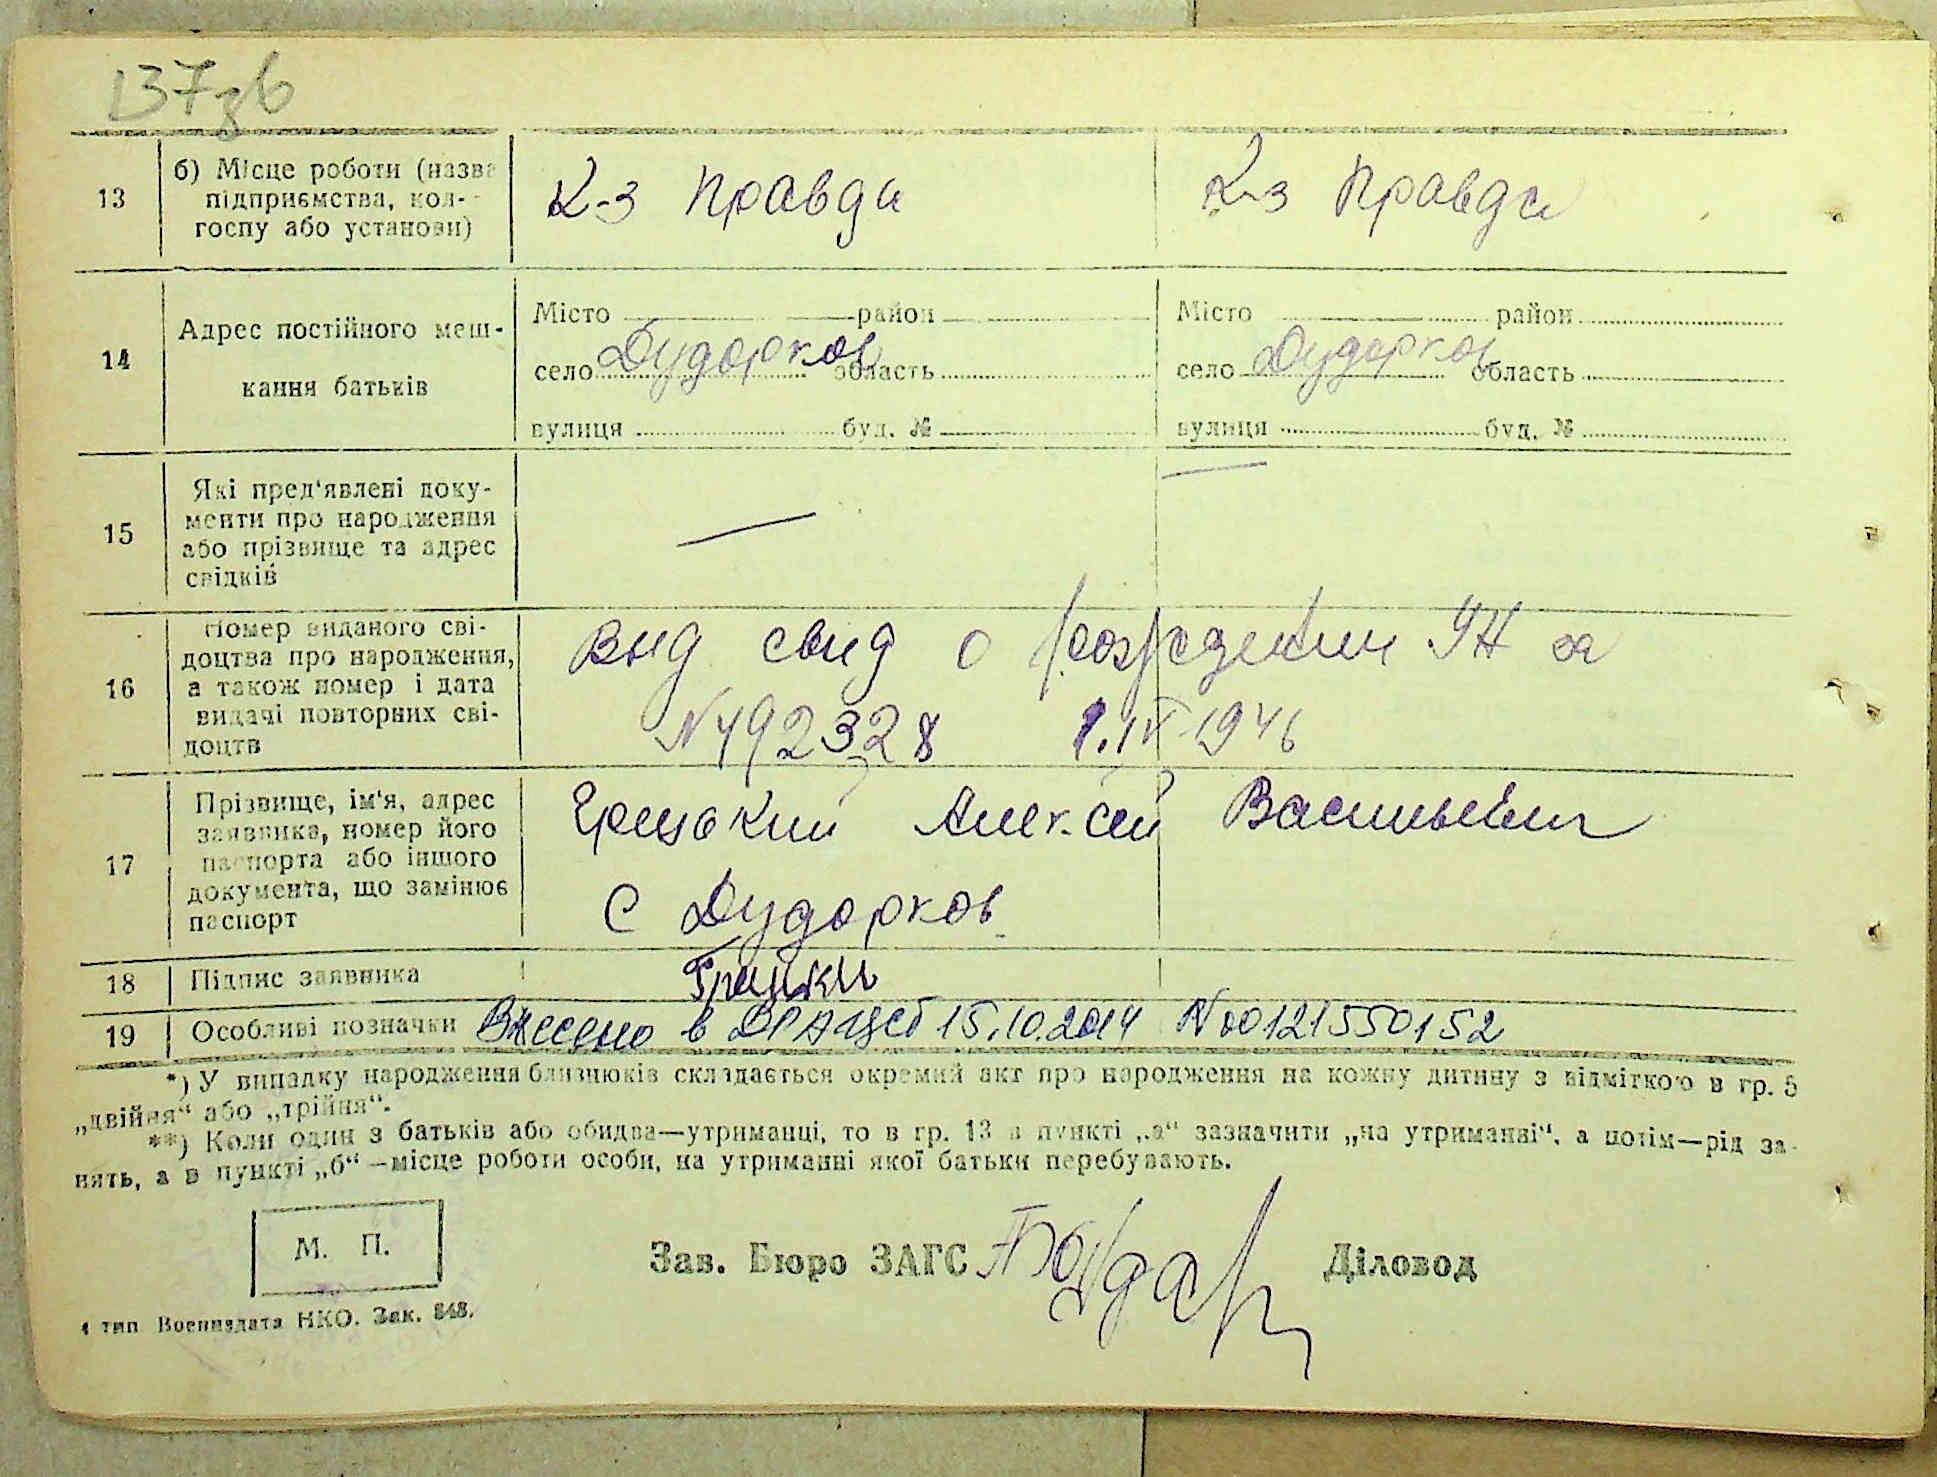 137зв
13
б) Місце роботи (назва
підприємства, кол-
госпу або установи)
К-з Правда
К-з Правда
14
Адрес постійного меш-
кання батьків
Місто район
село Дударков область
вулиця буд. №
Місто район
село Дударков область
вулиця буд. №
15
Які пред'явлені доку-
менти про народження
або прізвище та адрес
свідків
—
—
16
Номер виданого сві-
доцтва про народження,
а також номер і дата
видачі повторних сві-
доцтв
Выд свид о рождении УН
N 492328 1.IV 1946
17
Прізвище, ім'я, адрес
заявника, номер його
паспорта або іншого
документа, що замінює
паспорт
Грицький Алексей Васильевич
С Дударков
18
Підпис заявника
19
Особливі позначки
Внесено в ДРАЦСГ 15.10.2014 N 00121550152
*) У випадку народження близнюків складається окремий акт про народження на кожну дитину з відміткою в гр. 5
„двійня“ або „трійня“.
**) Коли один з батьків або обидва—утриманці, то в гр. 13 в пункті „а“ зазначити „на утриманні“, а потім—рід за-
нять, а в пункті „б“ —місце роботи особи, на утриманні якої батьки перебувають.
М. П.
Зав. Бюро ЗАГС
Діловод
тип Воениздата НКО. Зак. 848.